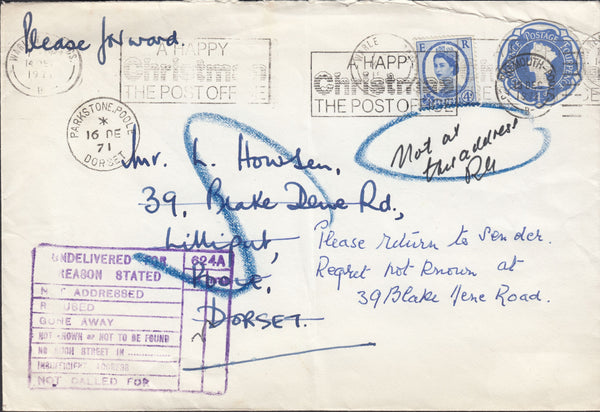 Please forward
1971
A HAPPY
Christmas
THE POST OFFICE
A HAPPY
Christmas
THE POST OFFICE
E R
POSTAGE
PARKSTONE, POOLE
16 DE
71
DORSET
Not at
this address
Mr. L. Howsen,
39, Blake Dene Rd.,
Lilliput,
Poole,
DORSET.
Please return to sender.
Regret not known at
39 Blake Dene Road.
UNDELIVERED FOR
REASON STATED
624A
NOT ADDRESSED
REFUSED
GONE AWAY
NOT KNOWN or NOT TO BE FOUND
NO SUCH STREET IN
INSUFFICIENT ADDRESS
NOT CALLED FOR